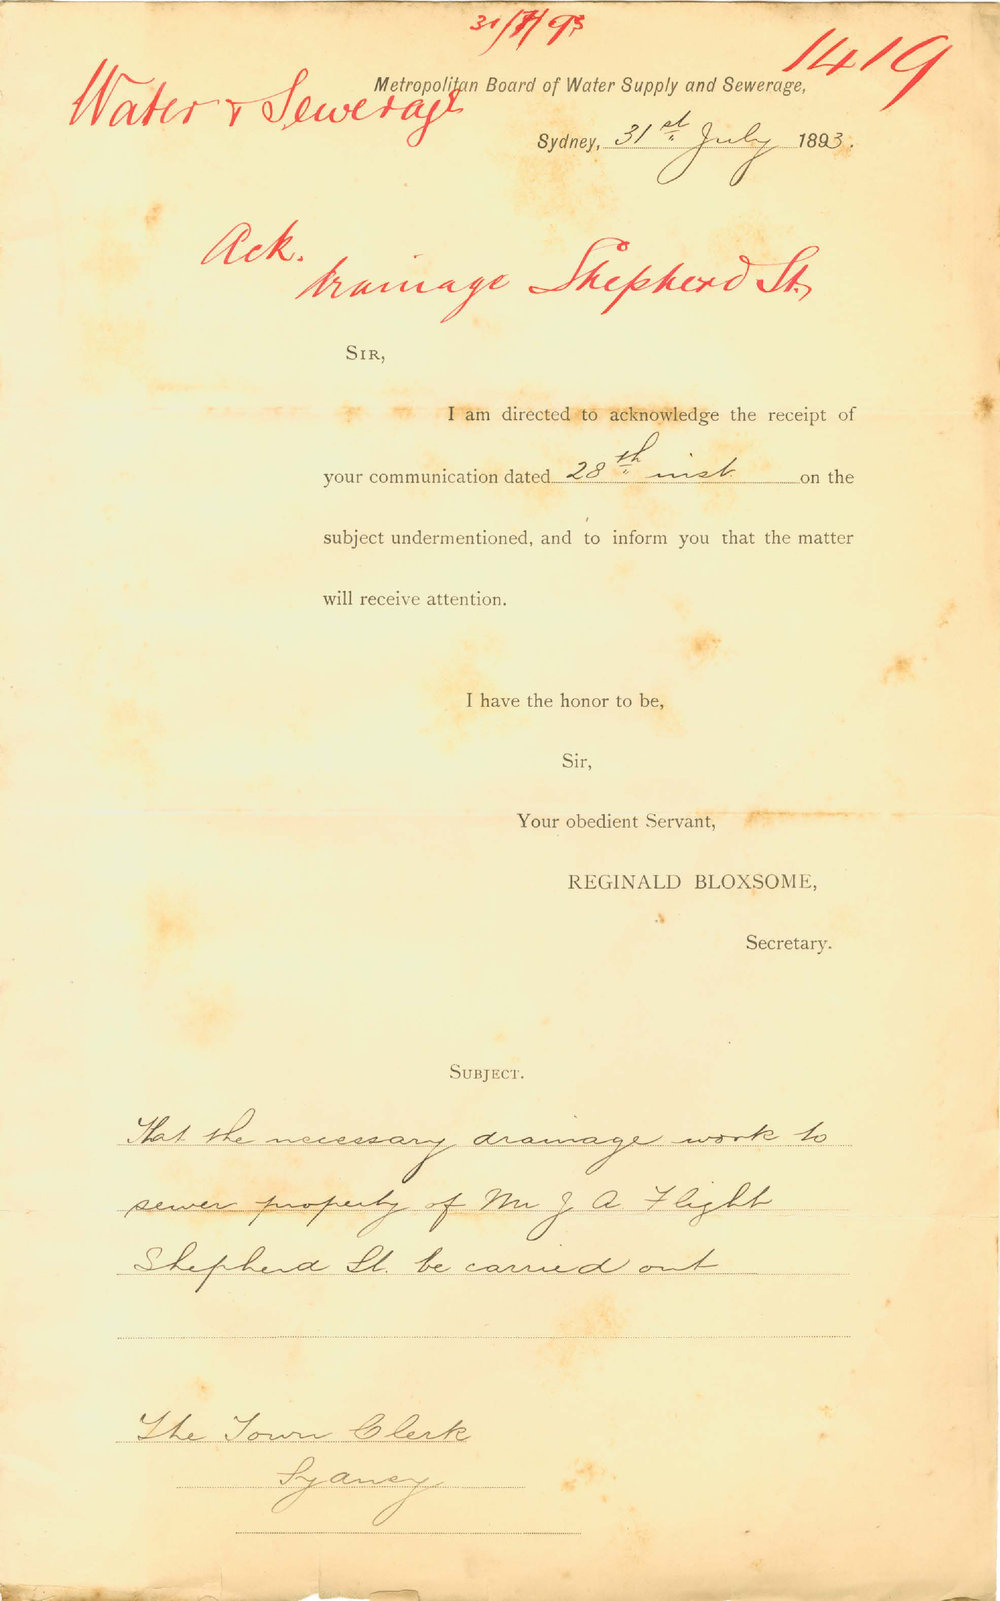 31/7/93
1419
Metropolitan Board of Water Supply and Sewerage,
Water & Sewerage
Sydney, 31st July 1893.
Ack.
drainage Shepherd St.
SIR,
I am directed to acknowledge the receipt of
your communication dated 28th inst. on the
subject undermentioned, and to inform you that the matter
will receive attention.
I have the honor to be,
Sir,
Your obedient Servant,
REGINALD BLOXSOME,
Secretary.
SUBJECT.
That the necessary drainage work to
sewer property of Mr J A Flight
Shepherd St. be carried out
The Town Clerk
Sydney